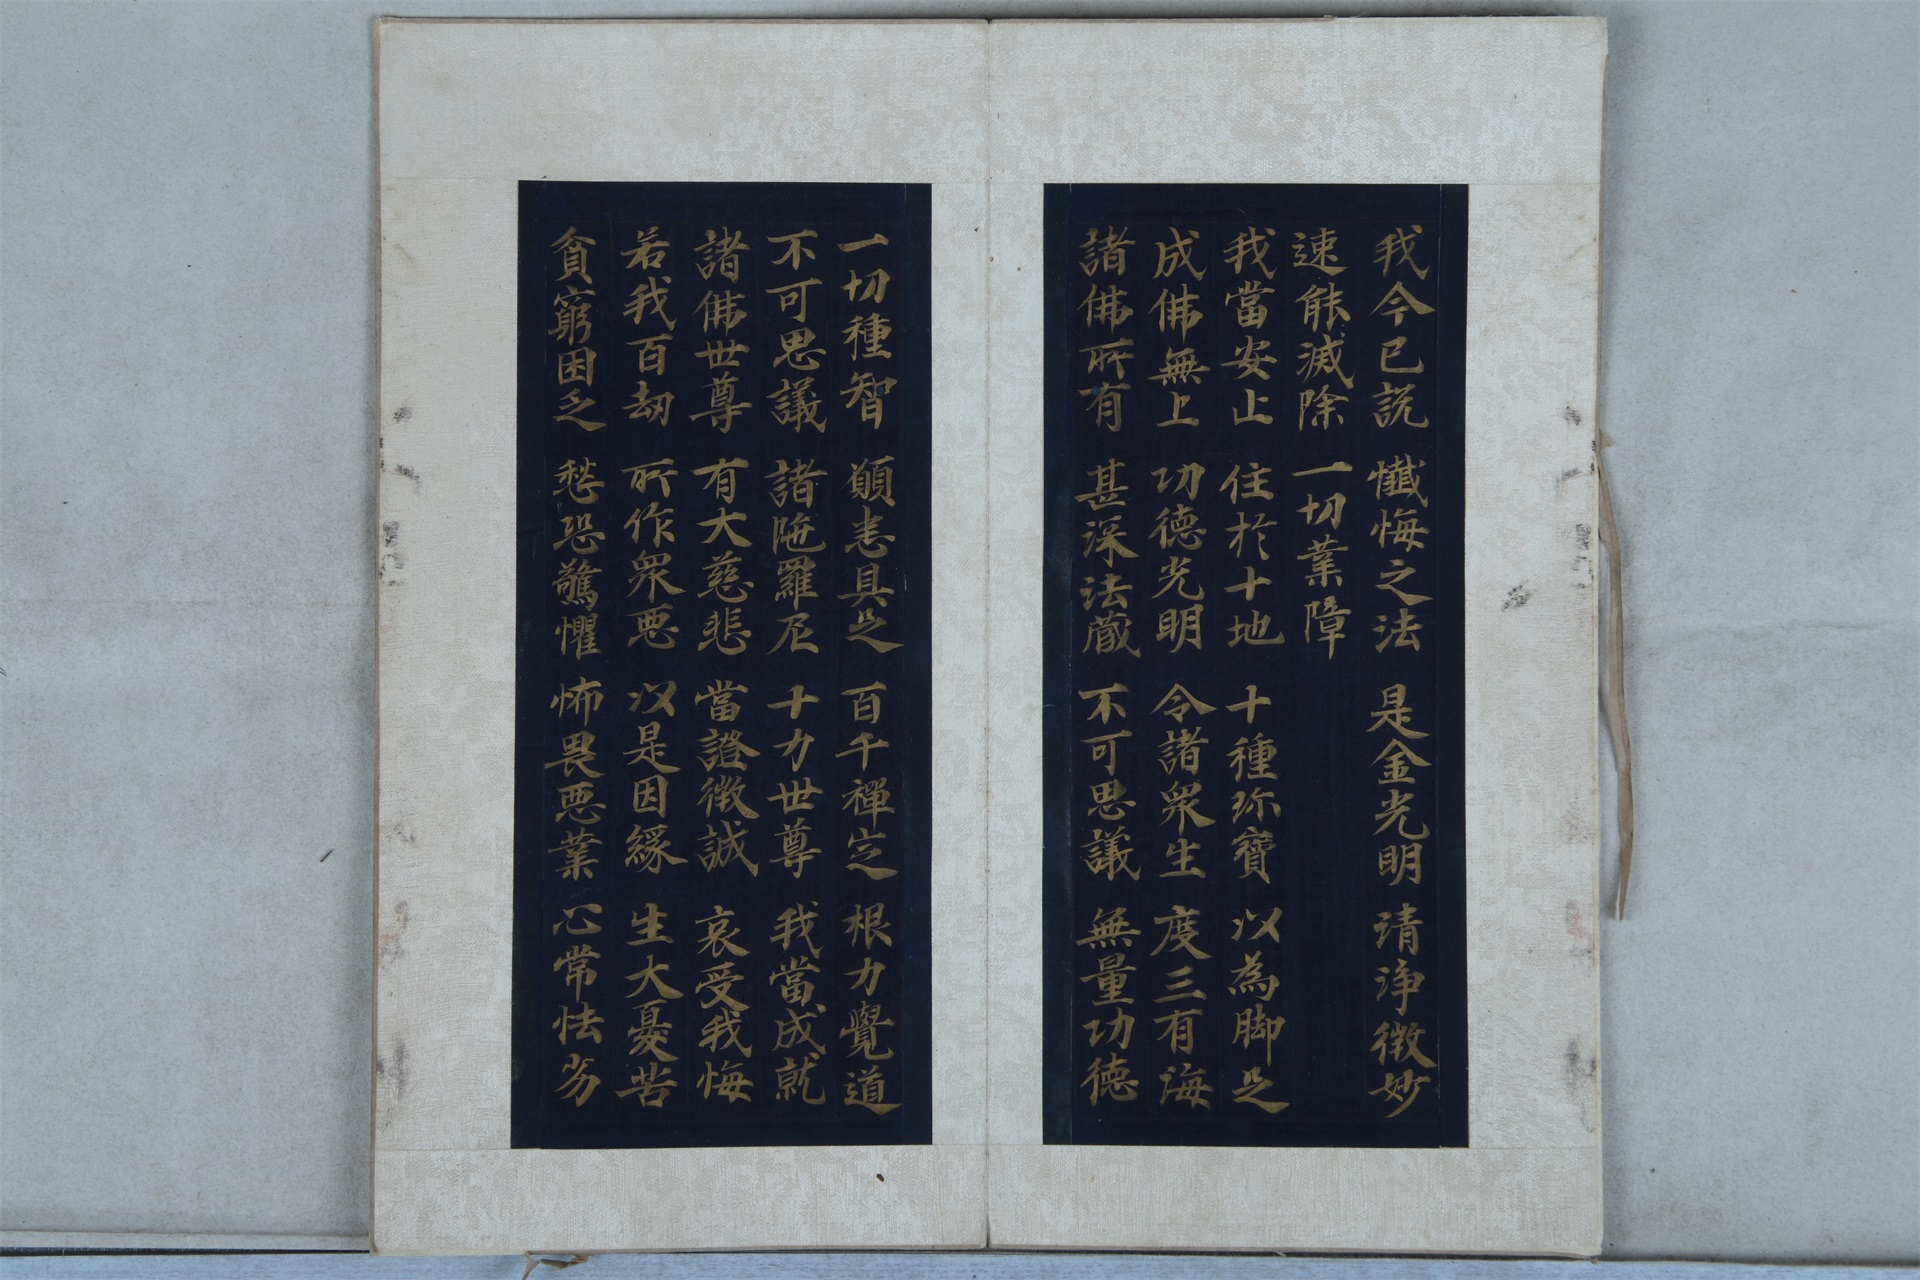 我今已説 懺悔之法 是金光明 清淨微妙
速能滅除 一切業障
我當安止 住於十地 十種珎寶 以為脚足
成佛無上 功德光明 令諸衆生 度三有海
諸佛所有 甚深法藏 不可思議 無量功德
一切種智 願悉具足 百千禪定 根力覺道
不可思議 諸陁羅尼 十力世尊 我當成就
諸佛世尊 有大慈悲 當證微誠 哀受我悔
若我百劫 所作衆惡 以是因緣 生大憂苦
貧窮困乏 愁恐驚懼 怖畏惡業 心常怯劣